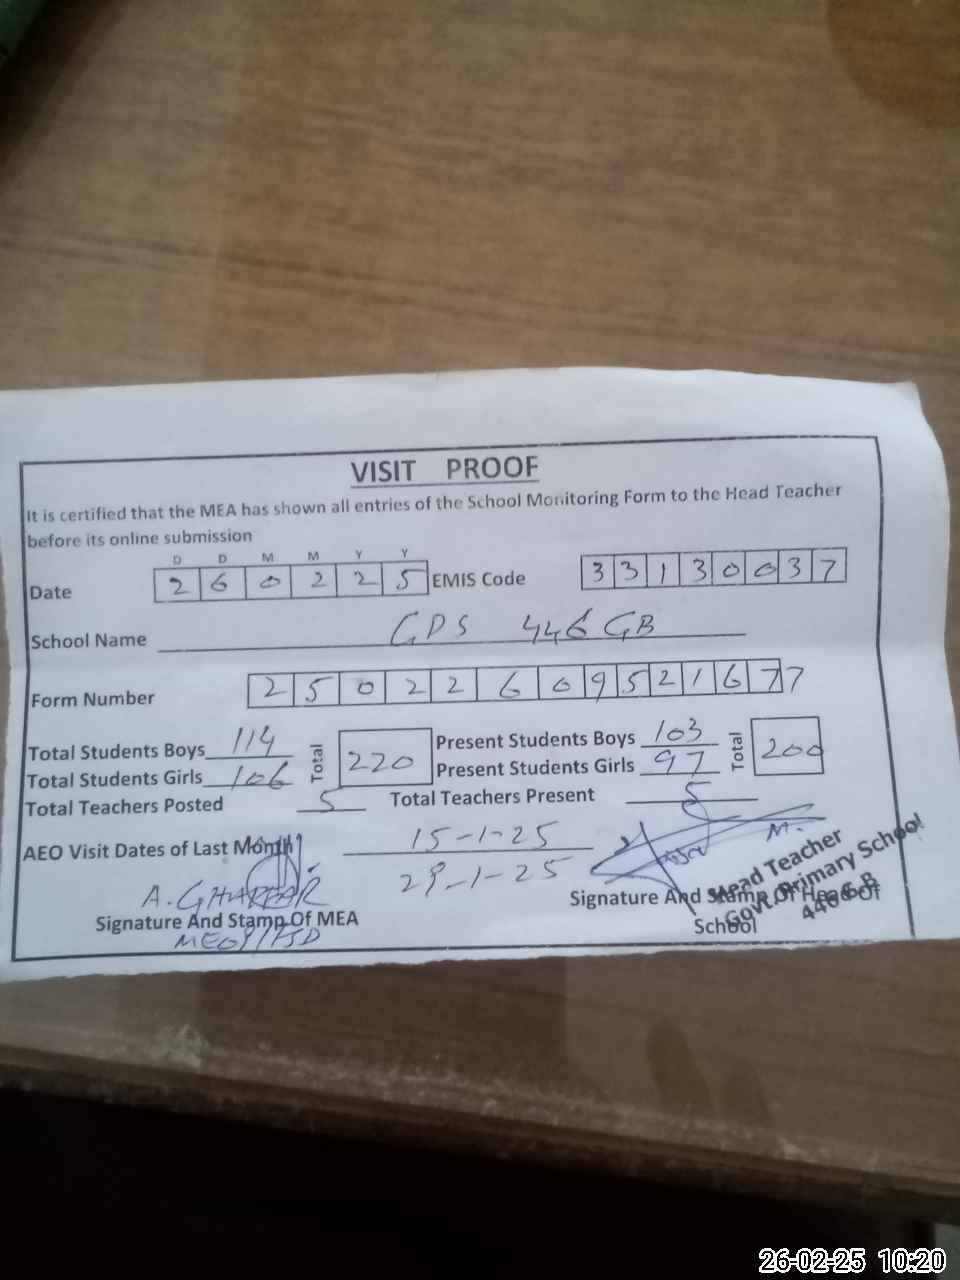 VISIT PROOF
It is certified that the MEA has shown all entries of the School Monitoring Form to the Head Teacher
before its online submission
D D M M Y Y
Date 2 6 0 2 2 5 EMIS Code 3 3 1 3 0 0 3 7
School Name GPS 446 GB
Form Number 2 5 0 2 2 6 0 9 5 2 1 6 7 7
Total Students Boys 114 Total 220 Present Students Boys 103 Total 200
Total Students Girls 106 Present Students Girls 97
Total Teachers Posted 5 Total Teachers Present 5
AEO Visit Dates of Last Month 15-1-25
29-1-25
A. GHAFFAR
Signature And Stamp Of MEA
Signature And Stamp Of Head Of
School
Head Teacher
Govt. Primary School
446 G.B
26-02-25 10:20